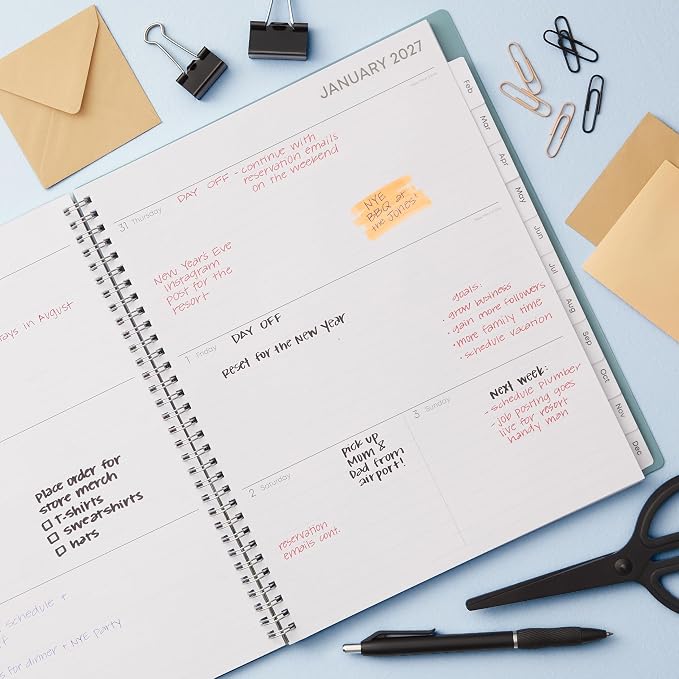 days in August
Place order for
store merch
T-shirts
sweatshirts
hats
schedule +
for dinner + NYE party
JANUARY 2027
31 Thursday
DAY OFF - continue with
reservation emails
on the weekend
NYE
BBQ at
the Jones'
New Year's Eve
Instagram
post for the
resort
1 Friday
DAY OFF
Reset for the New Year
goals:
- grow business
- gain more followers
- more family time
- schedule vacation
2 Saturday
Pick up
Mom &
Dad from
airport!
reservation
emails cont.
3 Sunday
Next week:
- schedule plumber
- job posting goes
live for resort
handy man
Feb
Mar
Apr
May
Jun
Jul
Aug
Sep
Oct
Nov
Dec